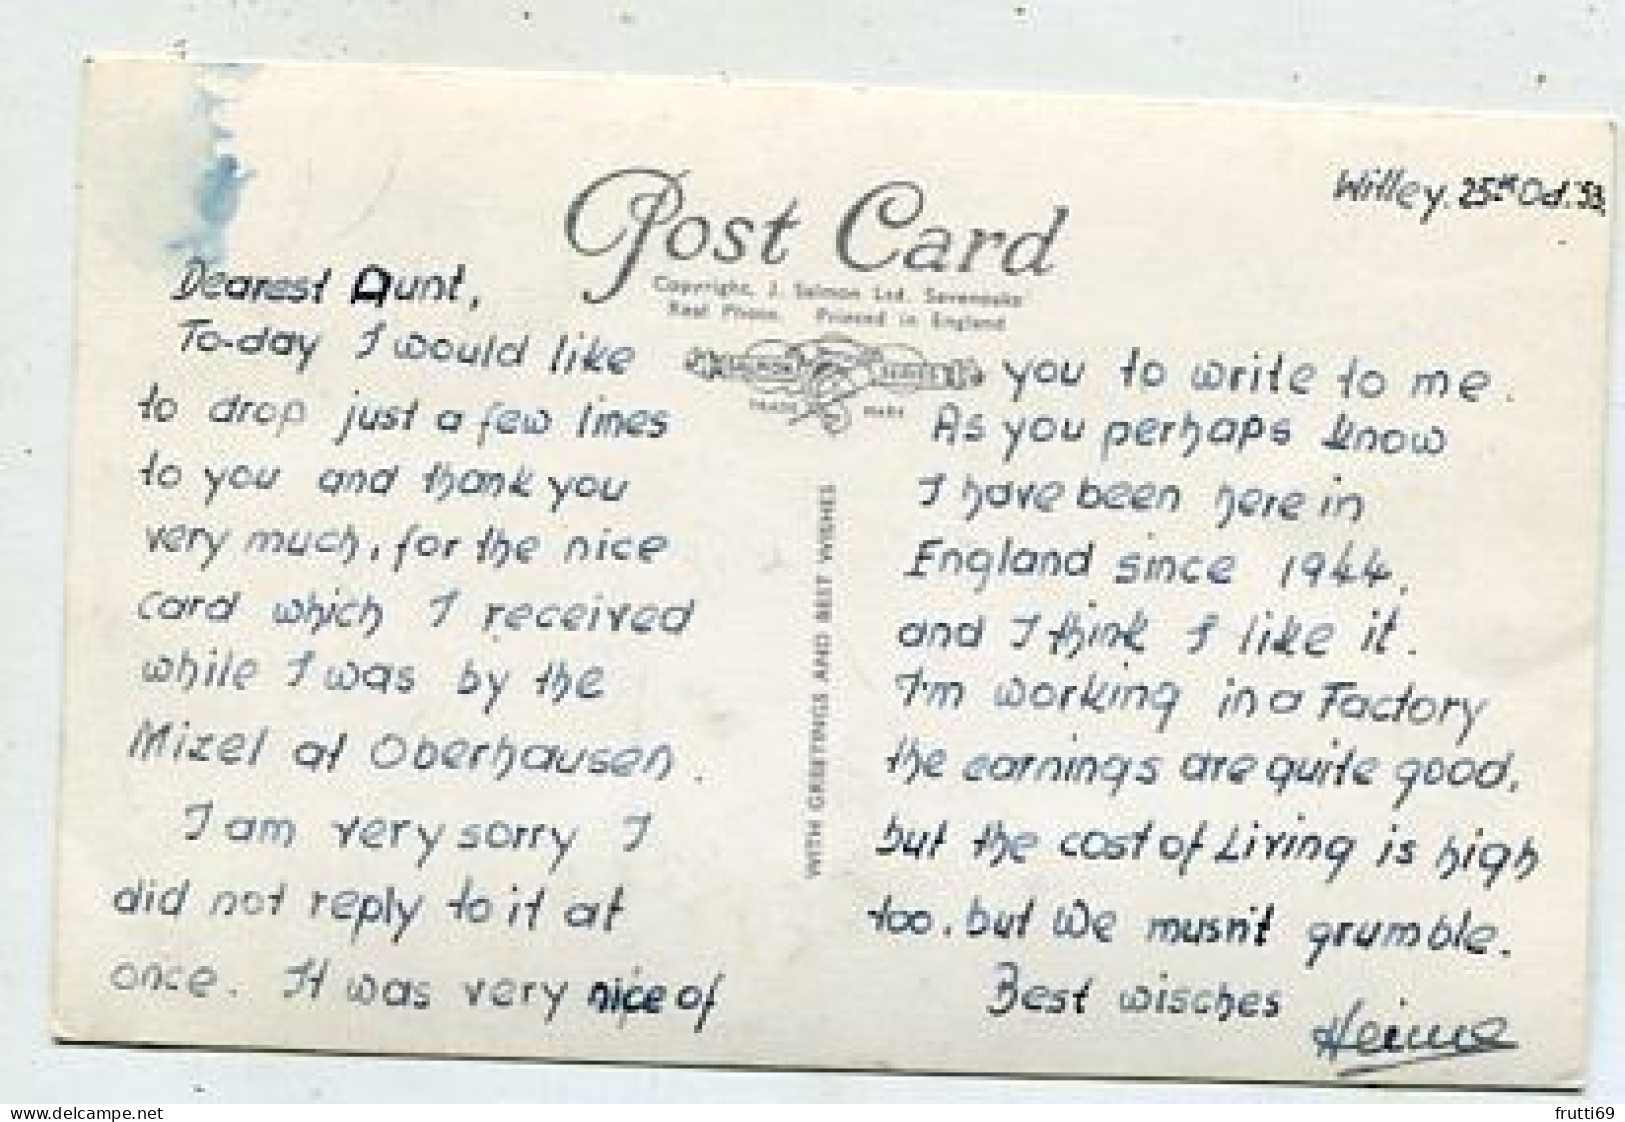 Witley. 25st Oct. '53.
Post Card
Copyright. J. Salmon Ltd. Sevenoaks
Real Photo. Printed in England
SALMON SERIES
TRADE MARK
WITH GREETINGS AND BEST WISHES
Dearest Aunt,
To-day I would like
to drop just a few lines
to you and thank you
very much, for the nice
card which I received
while I was by the
at Oberhausen.
I am very sorry I
did not reply to it at
once. It was very nice of
you to write to me.
As you perhaps know
I have been here in
England since 1944,
and I think I like it.
I'm working in a Factory
the earnings are quite good,
but the cost of Living is high
too, but We musn't grumble.
Best wisches
frutti69
www.delcampe.net